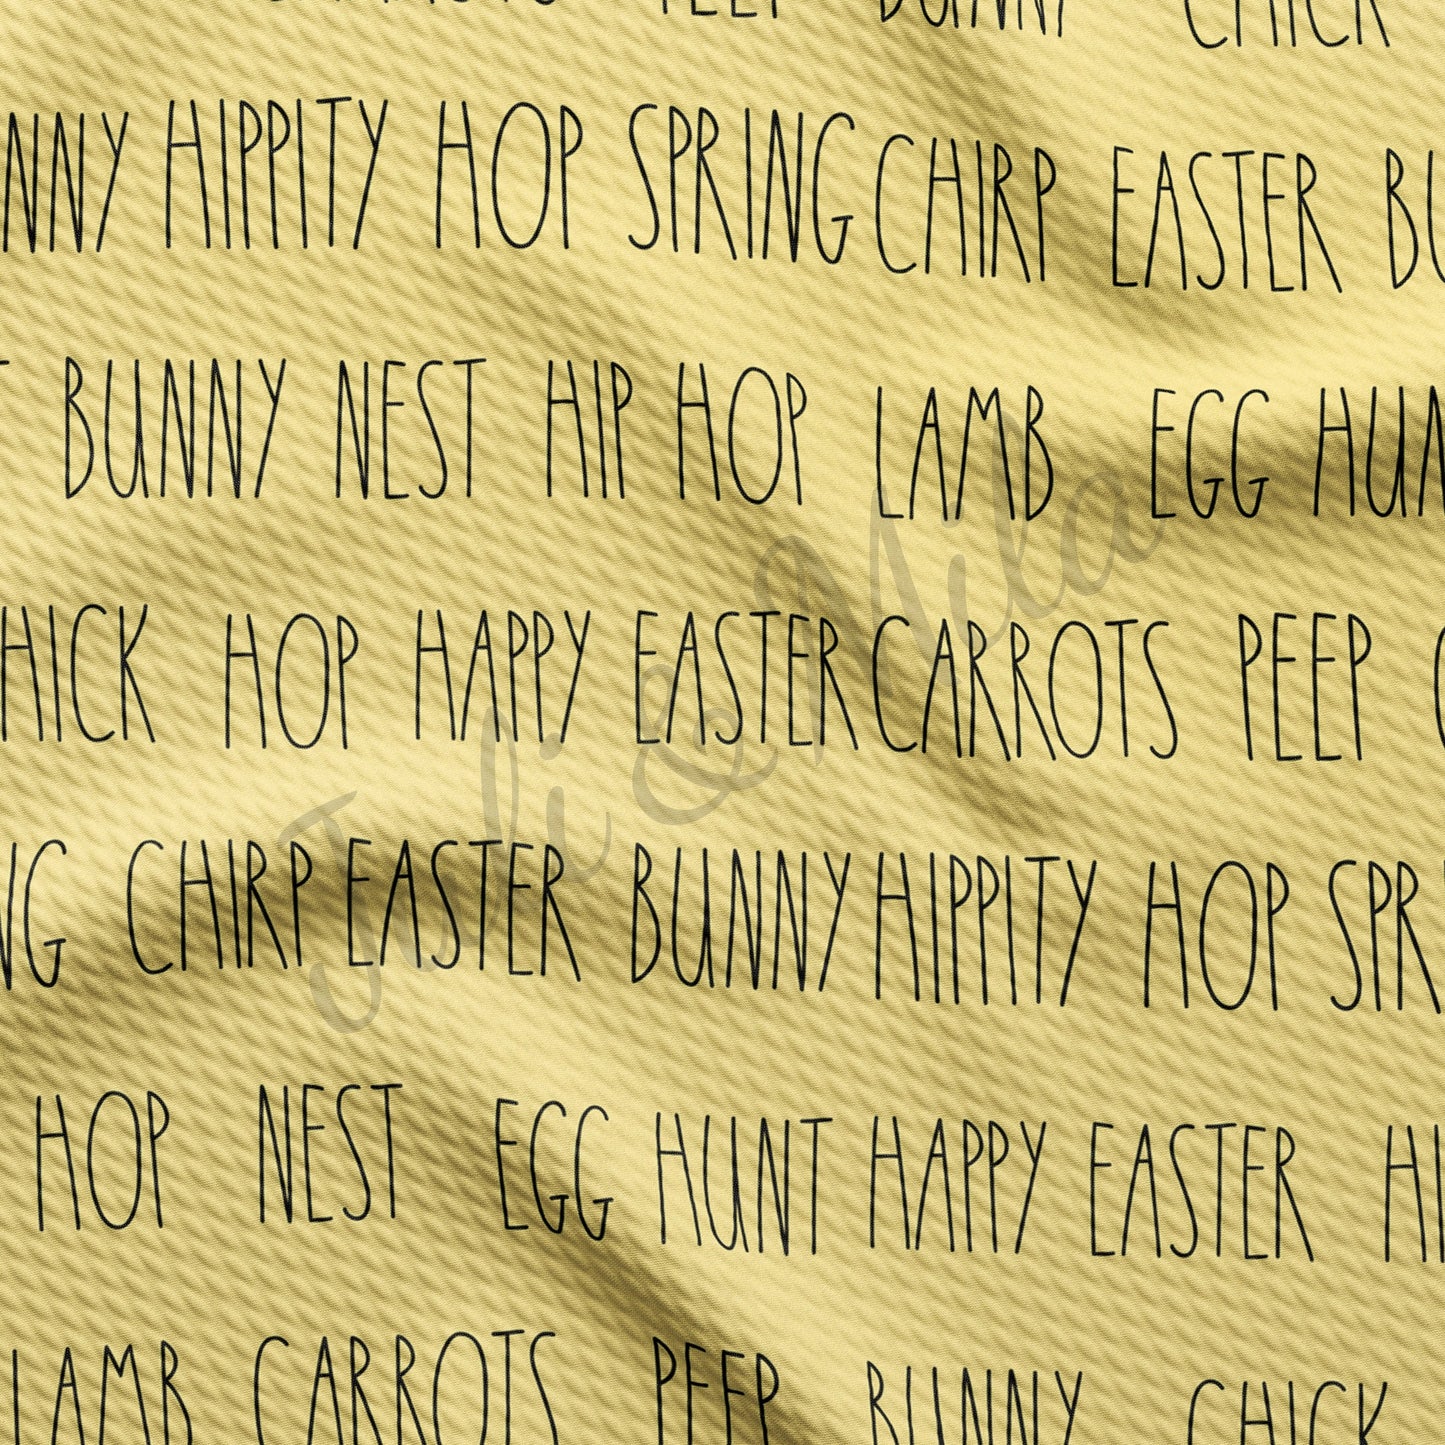 PEEP BUNNY CHICK
NNY HIPPITY HOP SPRING CHIRP EASTER BU
BUNNY NEST HIP HOP LAMB EGG HUN
HICK HOP HAPPY EASTER CARROTS PEEP
NG CHIRP EASTER BUNNY HIPPITY HOP SPR
HOP NEST EGG HUNT HAPPY EASTER HI
LAMB CARROTS PEEP BUNNY CHICK
Juli & Mila